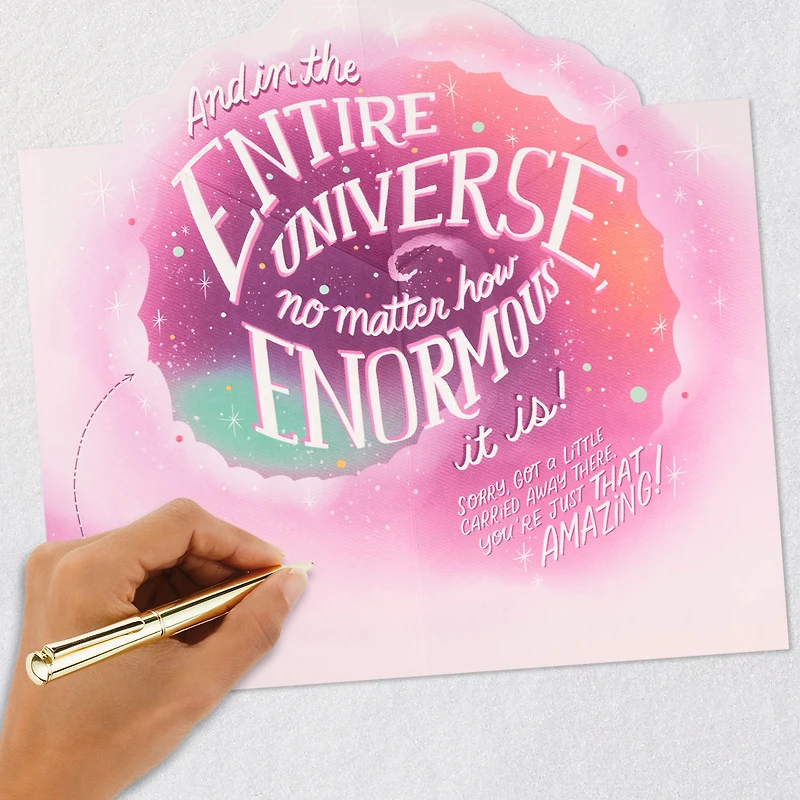 And in the
ENTIRE
UNIVERSE,
no matter how
ENORMOUS
it is!
SORRY, GOT A LITTLE
CARRIED AWAY THERE.
YOU'RE JUST THAT
AMAZING!